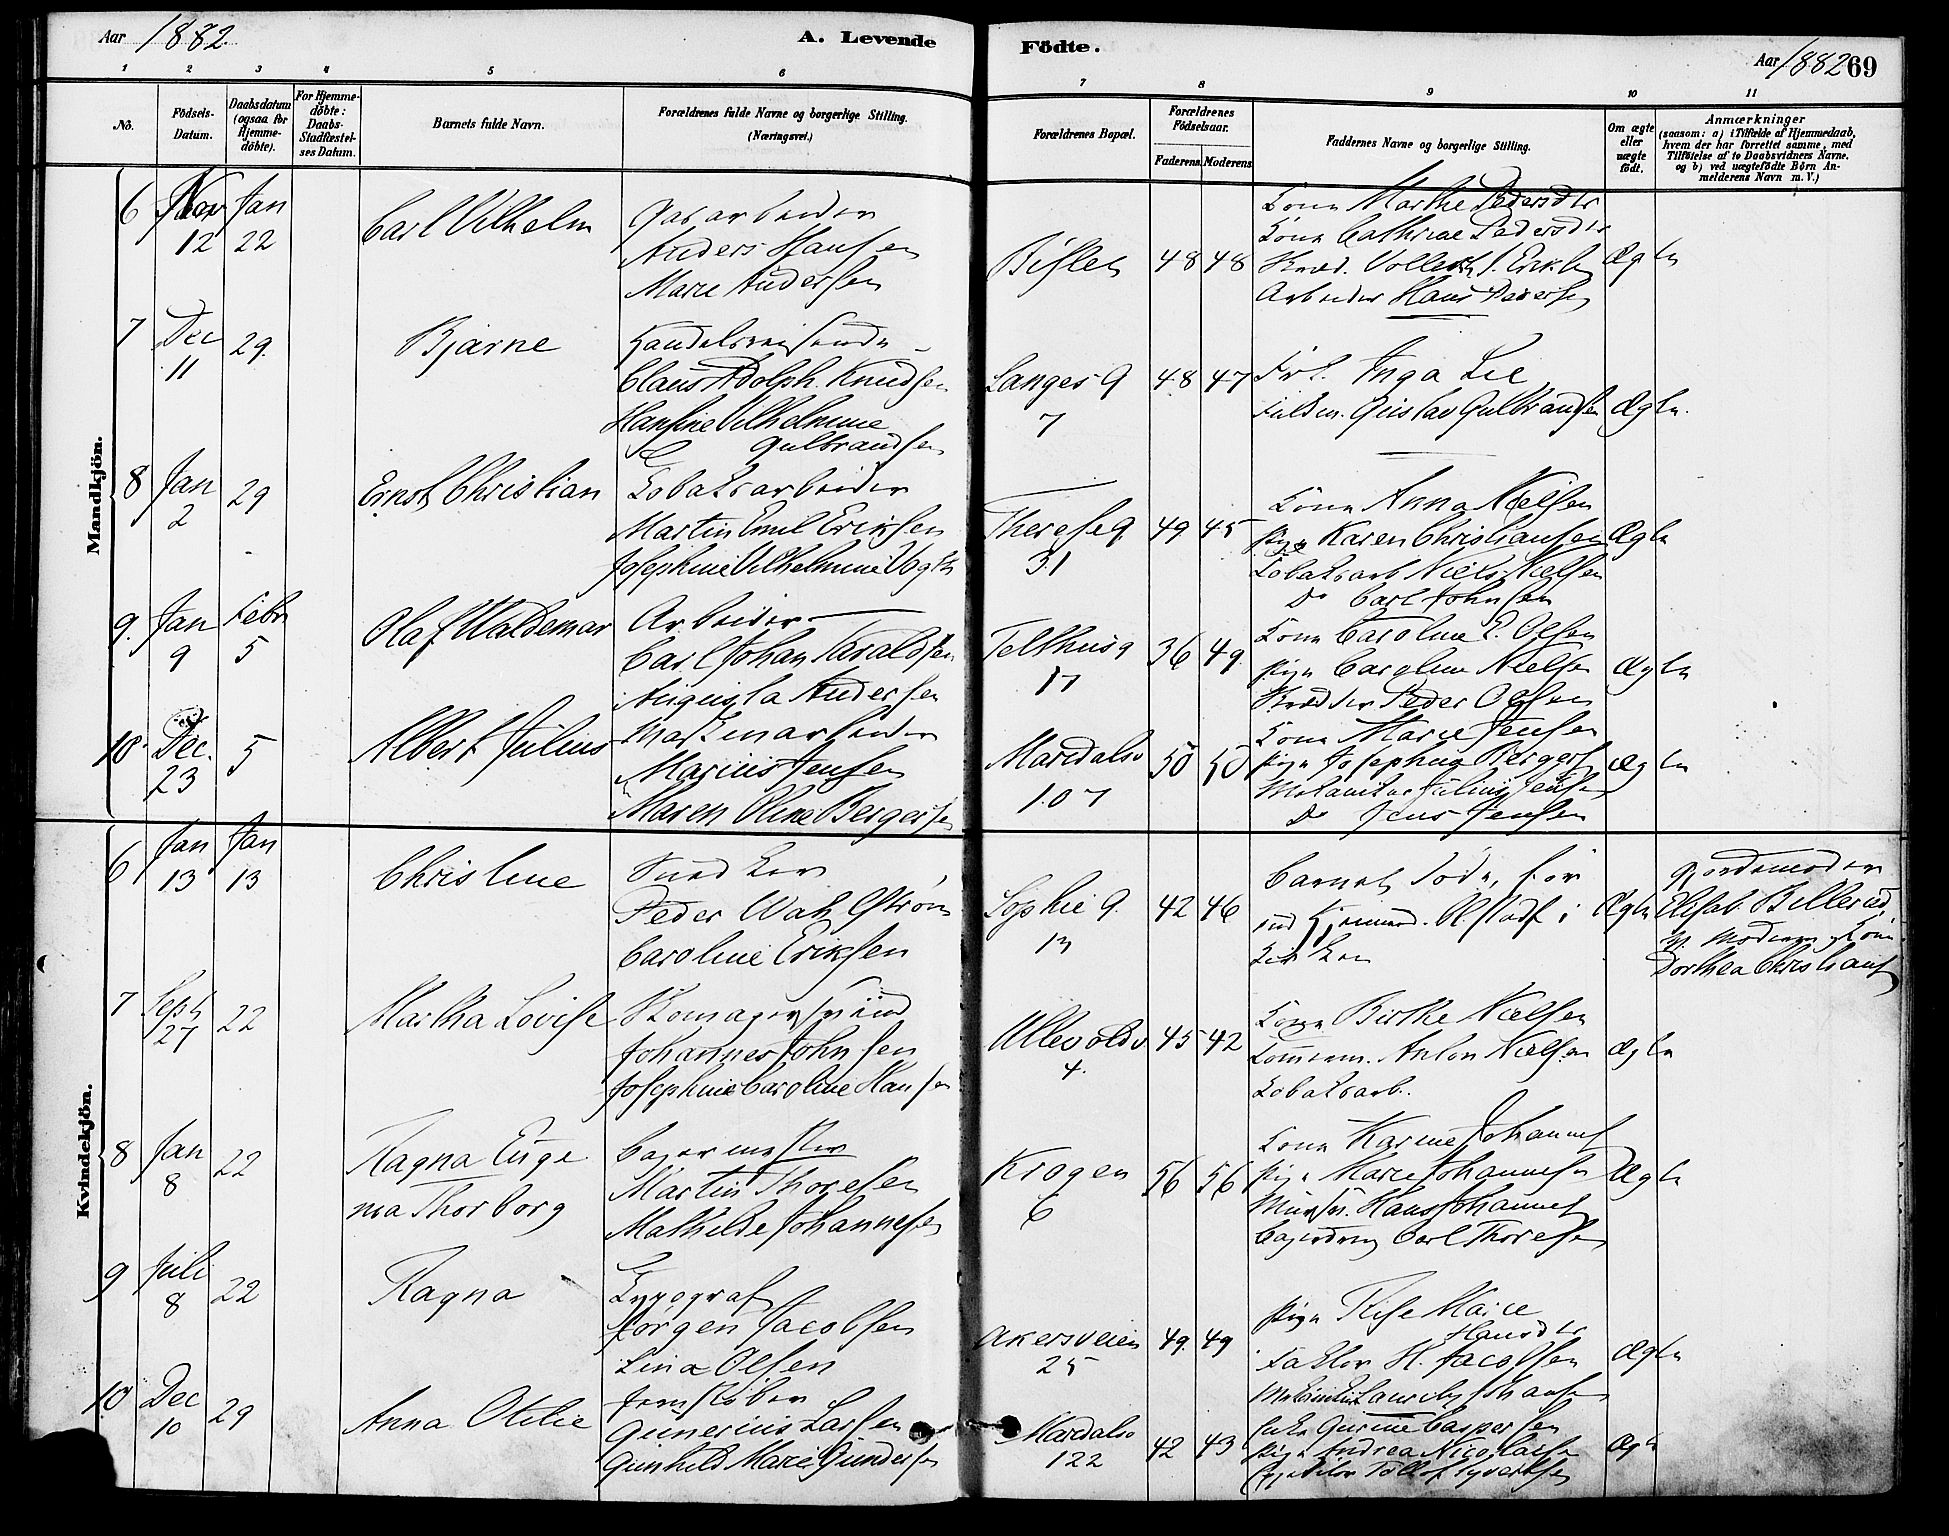 Aar 1882.
A. Levende
Födte.
Aar 1882 69
1 2 3 4 5 6 7 8 9 10 11
No.
Födsels-
Datum.
Daabsdatum
(ogsaa for
Hjemme-
döbte).
For Hjemme-
döbte:
Daabs-
Stadfæstel-
ses Datum.
Barnets fulde Navn.
Forældrenes fulde Navne og borgerlige Stilling.
(Næringsvei.)
Forældrenes Bopæl.
Forældrenes
Födselsaar.
Faderens. Moderens.
Faddernes Navne og borgerlige Stilling.
Om ægte
eller
uægte
födt.
Anmærkninger
(saasom: a) i Tilfælde af Hjemmedaab,
hvem der har forrettet samme, med
Tilföielse af to Daabsvidners Navne.
og b) ved uægtefödte Börn An-
melderens Navn m. V.)
Mandkjön.
6 Nov 12 Jan 22
Carl Vilhelm
Gasarbeider
Anders Hansen
Marie Andersen
Bislet 48 48
Kone Marthe Pedersdtr
Kone Cathrine Pedersdtr
Arbeider Hans Pedersen
Ægte
7 Dec 11 29.
Bjarne
Handelsreisende
Claus Adolph Knudsen
Hansine Vilhelmine
Gulbrandsen
Langes G 7 48 47
Frk. Inga Lie
Gustav Gulbrandsen
Ægte.
8 Jan 2 29
Ernst Christian
Tobaksarbeider
Martin Emil Eriksen
Josephine Vilhelmine Vogt
Thereseg. 31 49 45
Kone Anna Nielsen
Pige Karen Christiansen
Tobaksarb Niels Nielsen
Do Carl Johnsen
Ægte
9. Jan 9 Febr 5
Olaf Waldemar
Arbeider
Carl Johan Haraldsen
Augusta Andersen
Telthusg 17 36 49.
Kone Caroline E. Olsen
Pige Caroline Nielsen
Peder Olsen
Ægte
10. Dec. 23 5
Albert Julius
Maskinarbeider
Marius Jensen
Maren Oline Bergersen
Maridalsv 107 50 50
Kone Marie Jensen
Pige Josephine Bergers
Julius Jensen
Do Jens Jensen
Ægte
Kvindekjön.
6 Jan 13 Jan 13
Christine
Snedker
Peder Wahlstrøm
Caroline Eriksen
Sophie g. 13 42 46
Barnet døde, før
Stadf i
Kirken
Ægte
Gjordemoder
Elisab. Billerud,
Moderen Kone
Dorthea Christians
7 Sept 27 22
Martha Lovise
Skomagersvend
Johannes Johnsen
Josephine Caroline Hansen
Ullevoldsv 4. 45 42
Kone Birthe Nielsen
Anton Nielsen
Tobaksarb.
Ægte
8 Jan 8 22
Ragna Euge
nia Thorborg
Bagermester
Martin Thoresen
Mathilde Johannesen
Krogen 6 56 56
Kone Karine Johannes
Pige Marie Johannesen
Hans Johannes
Carl Thoresen
Ægte
9 Juli 8 22
Ragna
Typograf
Jørgen Jacobsen
Lina Olsen
Akersveien 25 49. 49
Pige Marie
Hansdtr
Faktor H. Jacobsen
Ægte
10 Dec 10 29
Anna Otilie
Jernstøber
Gunerius Larsen
Gunhild Marie Gundersen
Maridalsv 122 42 43
Gurine Caspersen
Pige Andrea Nicolaise
Ægte